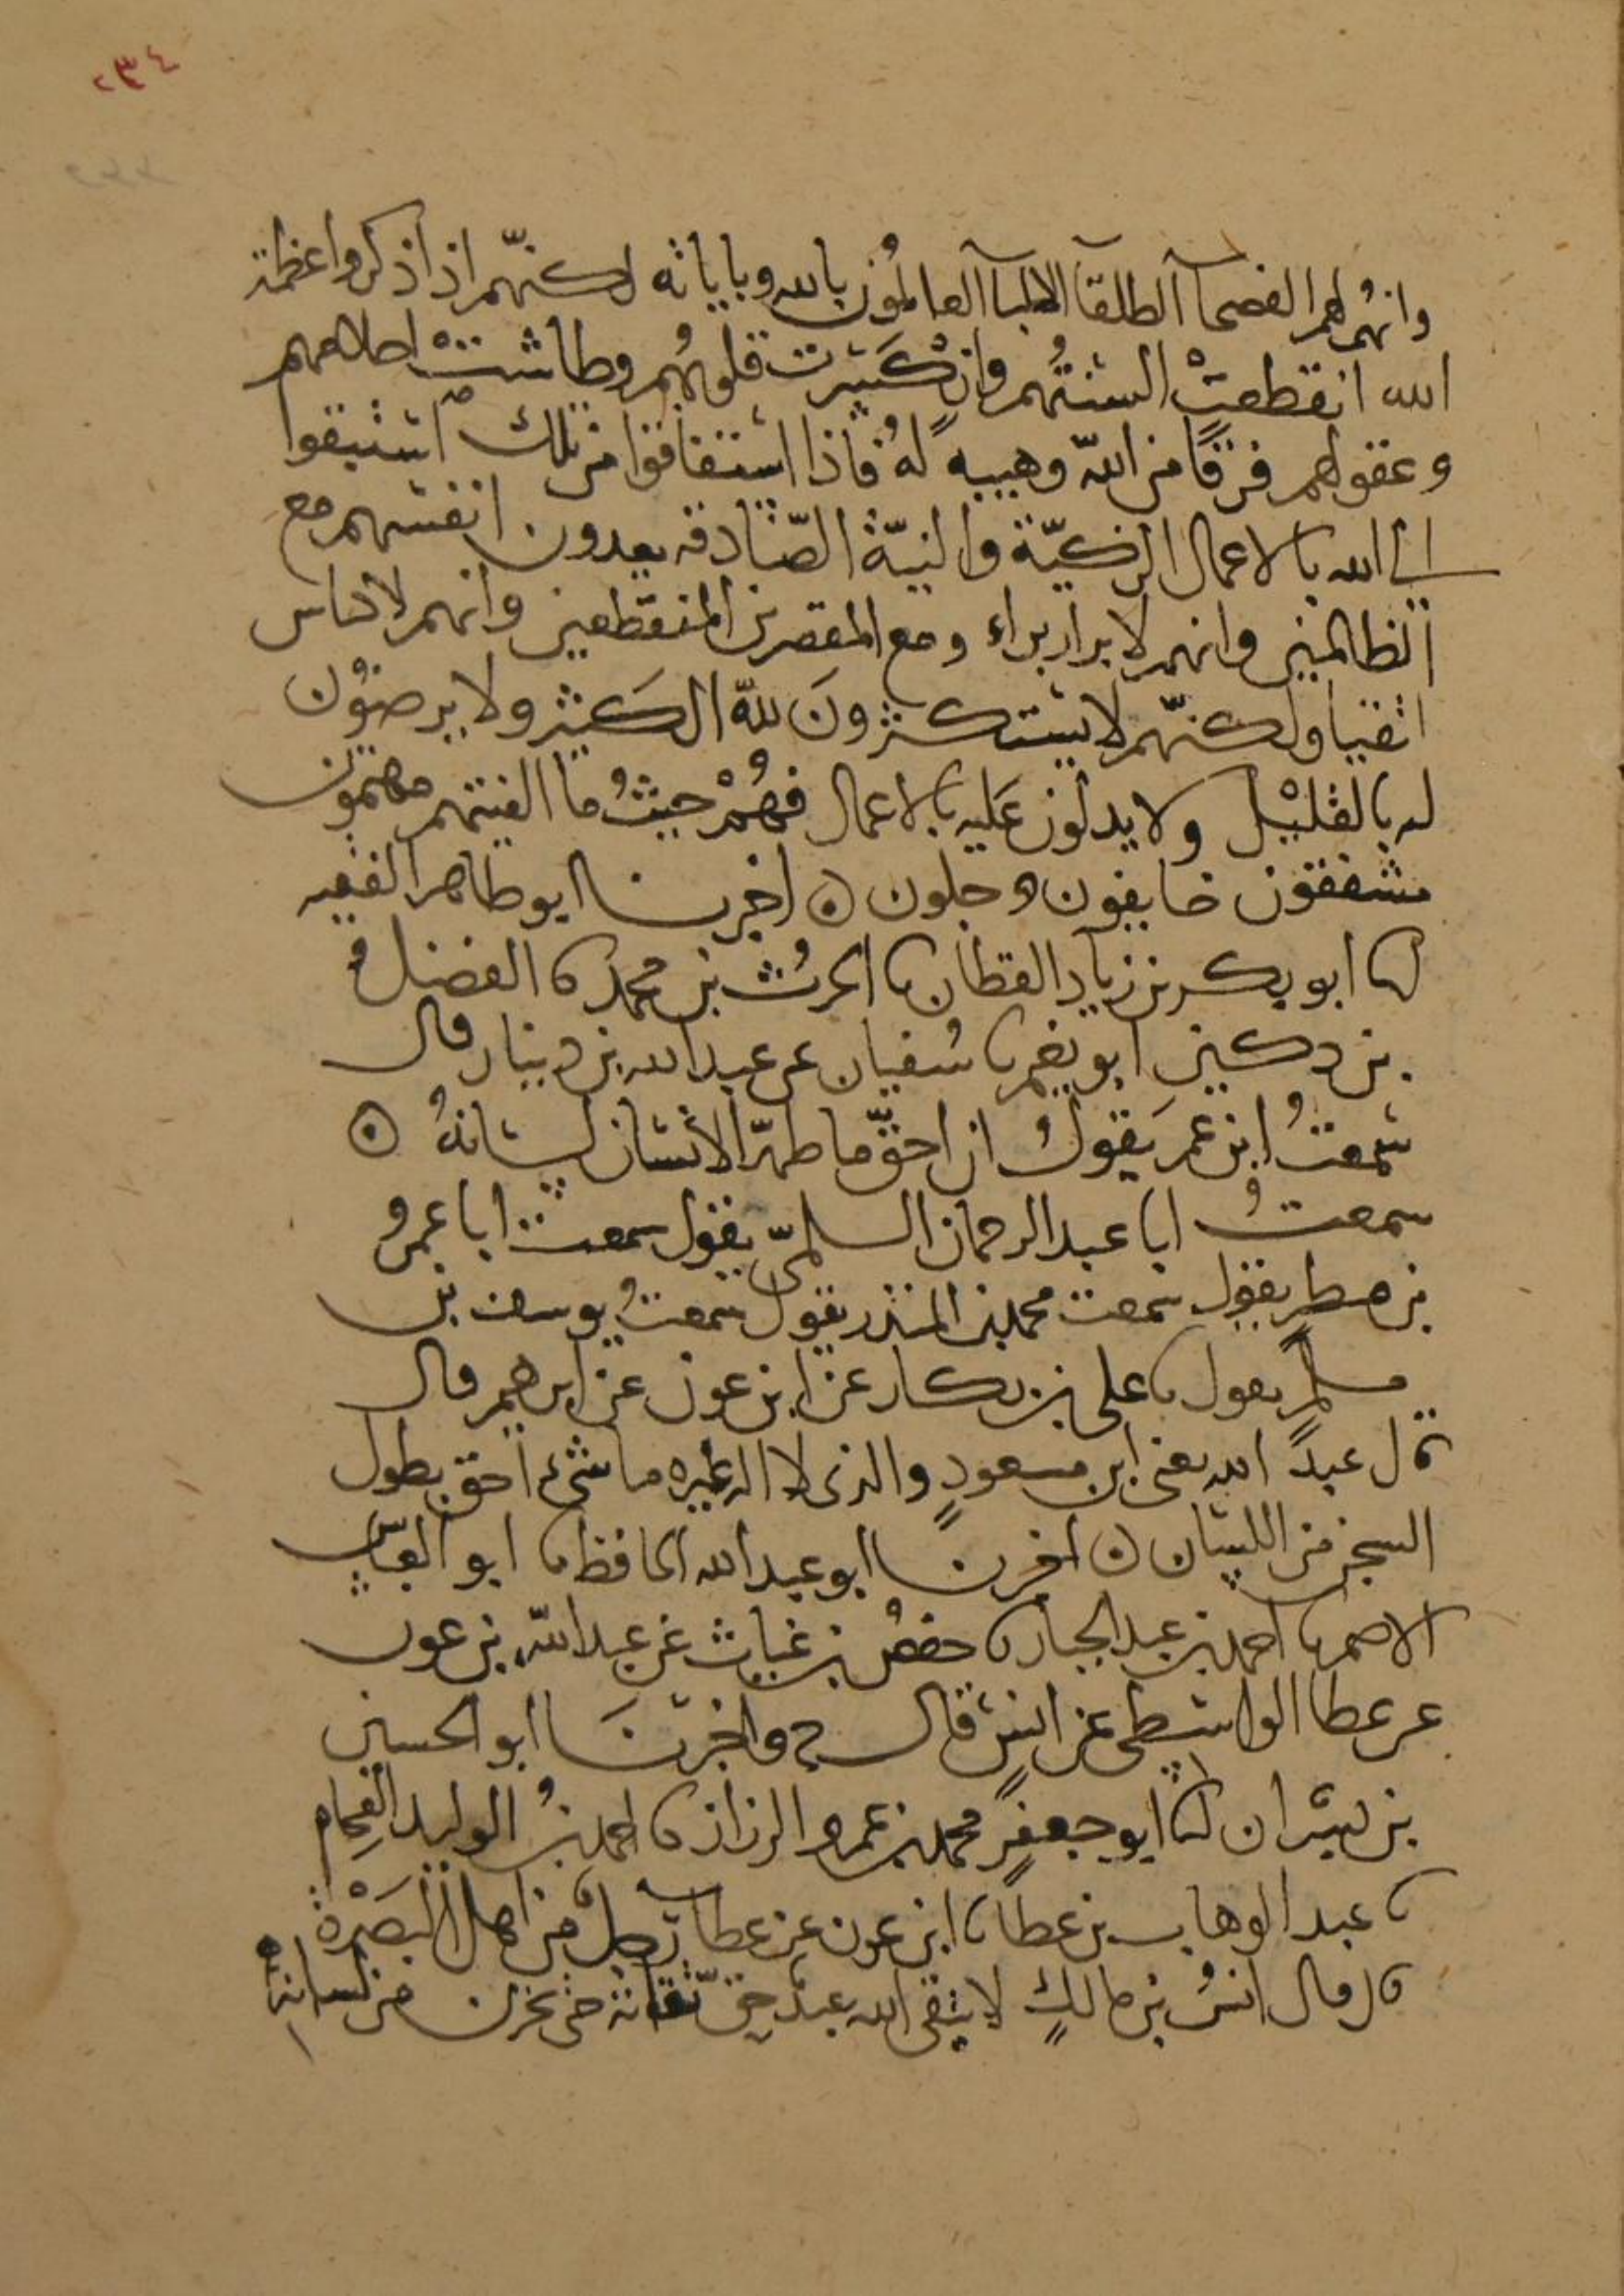 ٢٣٤
وانهم لهم الفصحآ الطلقآ الالبآ العالمون بالله وباياته لكنهم اذا ذكروا عظمة
الله انقطعت السنتهم وانكسرت قلوبهم وطاشت احلامهم
وعقولهم فرقا من الله وهيبه له فاذا استفاقوا من تلك استبقوا
الى الله بالاعمال الزكيّة والنيّة الصّادقه يعدون انفسهم مع
الظالمين وانهم لابرار براء ومع المقصرين المنقطعين وانهم لاكياس
اتقيا ولكنّهم لا يستكثرونَ للهّ الكَثير ولا يرضوُن
له بالقليْل ولا يدلون عَليه بالاعمال فهُمْ حيثُ ما الفيتهم مهتمون
مشفقون خايفون وجلون ۞ اخبرنا ابو طاهر الفقيه
انا ابو بكر بن زياد القطان نا الحرث بن محمد نا الفضل
بن دكين ابو نعيم نا سُفيان عن عبد الله بن دينار قال
سمعتُ ابن عمرَ يقولُ ان احقّ ما طهرّ الانسان لسانهُ ۞
سمعتُ ابا عبد الرحمان السلميّ يقول سمعت ابا عمرو
بن مطرٍ يقول سمعت محمد بن المنذر يقول سمعتُ يوسف بن
مسلمٍ يقول نا على بن بكار عن ابن عون عن ابرهيم قال
قال عبدُ الله يعنى ابن مسعودٍ والذى لا اله غيره ما شىء احق بطول
السجن من اللسان ۞ اخبرنا ابو عبد الله الحافظ نا ابو العبّاس
الاصم نا احمد بن عبد الجبار نا حفصُ بن غياث عن عبد اللهّ بن عون
عن عطا الواسطى عن انسٍ قال ح واخبرنَا ابو الحسين
بن بشران انا ابو جعفرٍ محمد بن عمرو الرزاز نا احمد بنُ الوليد الفحام
نا عبد الوهاب بن عطا نا ابن عون عن عطا رجلٌ من اهل البَصْرة
قال قال انسُ بن مالكٍ لا يتقى الله عبدٌ حق تقاته حتى يخزن من لسانه